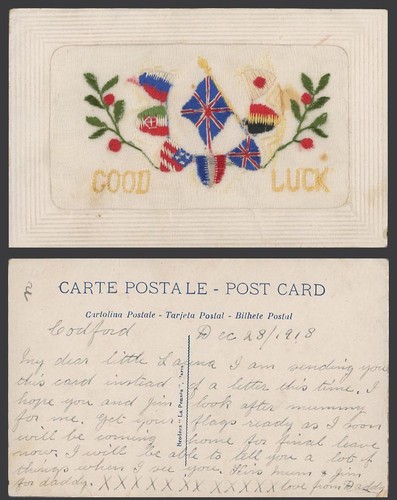 GOOD LUCK
CARTE POSTALE - POST CARD
Cartolina Postale - Tarjeta Postal - Bilhete Postal
Codford Dec 28/1918
My dear little Laura I am sending you
this card instead of a letter this time. I
hope you and Jim look after mummy
for me. Get your flags ready as I soon
will be coming home for final leave
now. I will be able to tell you a lot of
things when I see you. Kiss Mum & Jim
for daddy. XXXXXXXXXX love from Daddy